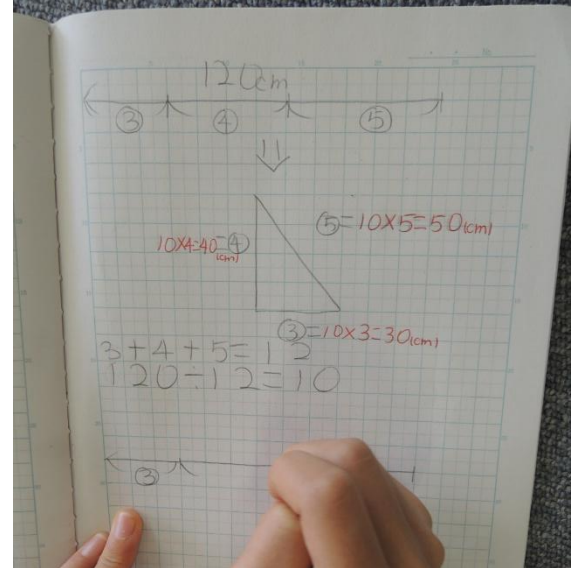 120cm
③ ④ ⑤
⑤=10×5=50(cm)
10×4=40=④
(cm)
③=10×3=30(cm)
3+4+5=12
120÷12=10
③